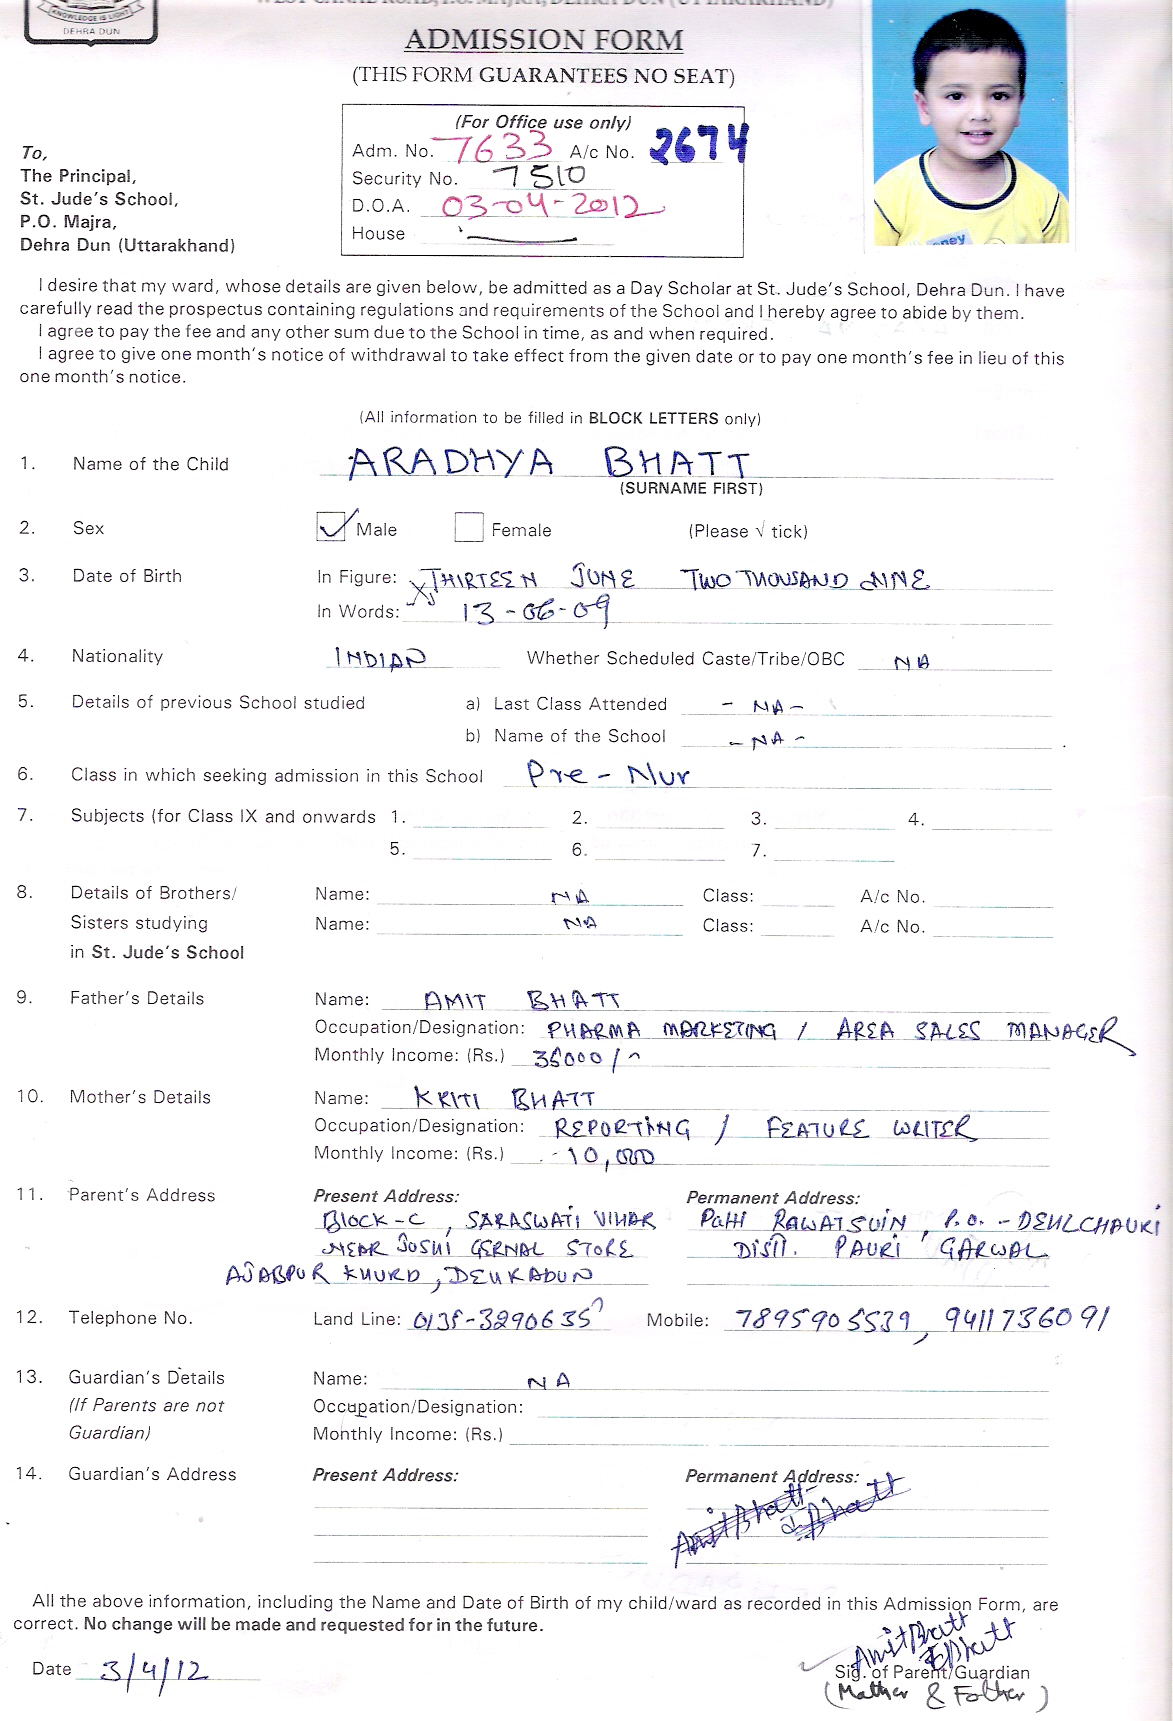 KNOWLEDGE IS LIGHT
DEHRA DUN
WEST CANAL ROAD, P.O. MAJRA, DEHRA DUN (UTTARAKHAND)
ADMISSION FORM
(THIS FORM GUARANTEES NO SEAT)
(For Office use only)
Adm. No. 7633 A/c No. 2674
Security No. 7510
D.O.A. 03-04-2012
House
To,
The Principal,
St. Jude's School,
P.O. Majra,
Dehra Dun (Uttarakhand)
I desire that my ward, whose details are given below, be admitted as a Day Scholar at St. Jude's School, Dehra Dun. I have
carefully read the prospectus containing regulations and requirements of the School and I hereby agree to abide by them.
I agree to pay the fee and any other sum due to the School in time, as and when required.
I agree to give one month's notice of withdrawal to take effect from the given date or to pay one month's fee in lieu of this
one month's notice.
(All information to be filled in BLOCK LETTERS only)
1. Name of the Child ARADHYA BHATT
(SURNAME FIRST)
2. Sex Male Female (Please √ tick)
3. Date of Birth In Figure: THIRTEEN JUNE TWO THOUSAND NINE
In Words: 13-06-09
4. Nationality INDIAN Whether Scheduled Caste/Tribe/OBC NA
5. Details of previous School studied a) Last Class Attended - NA -
b) Name of the School - NA -
6. Class in which seeking admission in this School Pre - Nur
7. Subjects (for Class IX and onwards 1. 2. 3. 4.
5. 6. 7.
8. Details of Brothers/ Name: NA Class: A/c No.
Sisters studying Name: NA Class: A/c No.
in St. Jude's School
9. Father's Details Name: AMIT BHATT
Occupation/Designation: PHARMA MARKETING / AREA SALES MANAGER
Monthly Income: (Rs.) 35000/-
10. Mother's Details Name: KRITI BHATT
Occupation/Designation: REPORTING / FEATURE WRITER
Monthly Income: (Rs.) 10,000
11. Parent's Address Present Address: Permanent Address:
BLOCK-C, SARASWATI VIHAR PATTI RAWATSUIN, P.O. - DEULCHAURI
NEAR JOSHI GERNAL STORE DISTT. PAURI GARWAL
AJABPUR KHURD, DEHRADUN
12. Telephone No. Land Line: 0135-3290635 Mobile: 7895905539, 9411736091
13. Guardian's Details Name: NA
(If Parents are not Occupation/Designation:
Guardian) Monthly Income: (Rs.)
14. Guardian's Address Present Address: Permanent Address:
Amit Bhatt
Bhatt
All the above information, including the Name and Date of Birth of my child/ward as recorded in this Admission Form, are
correct. No change will be made and requested for in the future.
Amit Bhatt
Bhatt
Date 3/4/12 Sig. of Parent/Guardian
(Mother & Father)